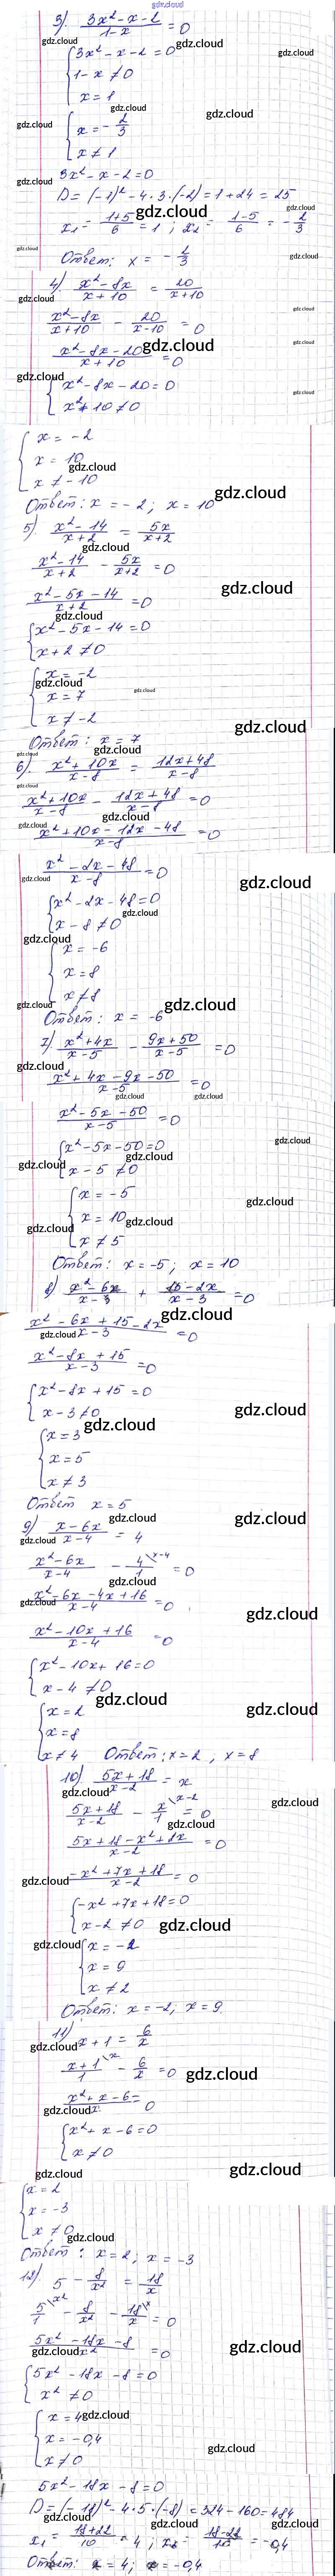 gdz.cloud
3) (3x² - x - 2)/(1 - x) = 0
{ 3x² - x - 2 = 0
1 - x ≠ 0
x = 1
{ x = -2/3
x ≠ 1
3x² - x - 2 = 0
D = (-1)² - 4·3·(-2) = 1 + 24 = 25
x₁ = (1+5)/6 = 1 ; x₂ = (1-5)/6 = -2/3
Ответ: x = -2/3
4) (x² - 8x)/(x + 10) = 20/(x + 10)
(x² - 8x)/(x + 10) - 20/(x - 10) = 0
(x² - 8x - 20)/(x + 10) = 0
{ x² - 8x - 20 = 0
x + 10 ≠ 0
{ x = -2
x = 10
x ≠ -10
Ответ: x = -2; x = 10
5) (x² - 14)/(x + 2) = 5x/(x + 2)
(x² - 14)/(x + 2) - 5x/(x + 2) = 0
(x² - 5x - 14)/(x + 2) = 0
{ x² - 5x - 14 = 0
x + 2 ≠ 0
{ x = -2
x = 7
x ≠ -2
Ответ: x = 7
6) (x² + 10x)/(x - 8) = (12x + 48)/(x - 8)
(x² + 10x)/(x - 8) - (12x + 48)/(x - 8) = 0
(x² + 10x - 12x - 48)/(x - 8) = 0
(x² - 2x - 48)/(x - 8) = 0
{ x² - 2x - 48 = 0
x - 8 ≠ 0
{ x = -6
x = 8
x ≠ 8
Ответ: x = -6
7) (x² + 4x)/(x - 5) - (9x + 50)/(x - 5) = 0
(x² + 4x - 9x - 50)/(x - 5) = 0
(x² - 5x - 50)/(x - 5) = 0
{ x² - 5x - 50 = 0
x - 5 ≠ 0
{ x = -5
x = 10
x ≠ 5
Ответ: x = -5; x = 10
8) (x² - 6x)/(x - 3) + (15 - 2x)/(x - 3) = 0
(x² - 6x + 15 - 2x)/(x - 3) = 0
(x² - 8x + 15)/(x - 3) = 0
{ x² - 8x + 15 = 0
x - 3 ≠ 0
{ x = 3
x = 5
x ≠ 3
Ответ x = 5
9) (x - 6x)/(x - 4) = 4
(x² - 6x)/(x - 4) - 4/1 \x-4 = 0
(x² - 6x - 4x + 16)/(x - 4) = 0
(x² - 10x + 16)/(x - 4) = 0
{ x² - 10x + 16 = 0
x - 4 ≠ 0
{ x = 2
x = 8
x ≠ 4 Ответ: x = 2, x = 8
10) (5x + 18)/(x - 2) = x
(5x + 18)/(x - 2) - x/1 \x-2 = 0
(5x + 18 - x² + 2x)/(x - 2) = 0
(-x² + 7x + 18)/(x - 2) = 0
{ -x² + 7x + 18 = 0
x - 2 ≠ 0
{ x = -2
x = 9
x ≠ 2
Ответ: x = -2; x = 9
11) x + 1 = 6/x
(x + 1)/1 \x - 6/x = 0
(x² + x - 6)/x = 0
{ x² + x - 6 = 0
x ≠ 0
{ x = 2
x = -3
x ≠ 0
Ответ: x = 2; x = -3
12) 5 - 8/x² = 18/x
5/1 \x² - 8/x² - 18/x \x = 0
(5x² - 18x - 8)/x² = 0
{ 5x² - 18x - 8 = 0
x² ≠ 0
{ x = 4
x = -0,4
x ≠ 0
5x² - 18x - 8 = 0
D = (-18)² - 4·5·(-8) = 324 - 160 = 484
x₁ = (18+22)/10 = 4 ; x₂ = (18-22)/10 = -0,4
Ответ: x = 4; x = -0,4